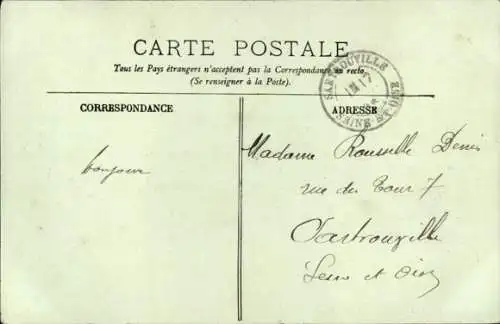 CARTE POSTALE
Tous les Pays étrangers n'acceptent pas la Correspondance au recto
(Se renseigner à la Poste).
SARTROUVILLE
SEINE ET OISE
CORRESPONDANCE
ADRESSE
bonjour
Madame Rousselle Denis
rue du Tour 7
Sartrouville
Seine et Oise